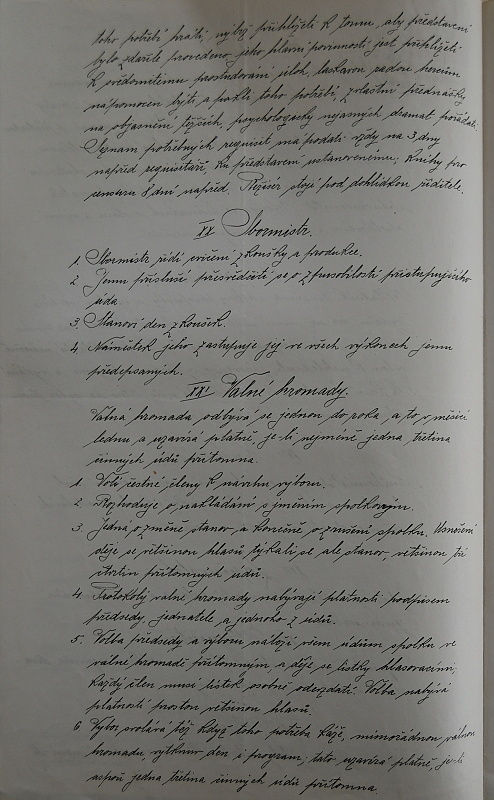 toho potřebí hráti, nýbrž přihlížeti k tomu, aby představení
bylo zdařile provedeno, jeho hlavní povinností jest přihlížeti
k svědomitému prostudování úloh, laskavou radou hercům
nápomocen býti, a pakli toho potřebí, zvláštní přednášky
na objasnění těžších, psychologicky nejasných dramat pořádati.
Seznam potřebných requisit má podati vždy na 3 dny
napřed requisitáři, ku představení ustanovenému, knihy pro
censuru 8 dní napřed. Režisér stojí pod dohlídkou ředitele.
XX Sbormistr.
1. Sbormistr řídí cvičení zkoušky a produkce.
2. Jemu přísluší přesvědčiti se o způsobilosti přistupujícího
úda.
3. Stanoví den zkoušek.
4. Náměstek jeho zastupuje jej ve všech výkonech jemu
předepsaných.
XXI Valné hromady.
Valná hromada odbývá se jednou do roka, a to v měsíci
lednu a uzavírá platně, je-li nejméně jedna třetina
činných údů přítomna.
1. Volí čestné členy k návrhu výboru.
2. Rozhoduje o nakládání s jměním spolkovým.
3. Jedná o změně stanov a konečně o zrušení spolku. Usnešení
děje se většinou hlasů, týká-li se ale stanov, většinou tří
čtvrtin přítomných údů.
4. Protokoly valné hromady nabývají platnosti podpisem
předsedy jednatele a jednoho z údů.
5. Volba předsedy a výboru náleží všem údům spolku ve
valné hromadě přítomným a děje se lístky hlasovacími,
každý člen musí lístek osobně odevzdati. Volba nabývá
platnosti prostou většinou hlasů.
6. Výbor svolává též když toho potřeba káže, mimořádnou valnou
hromadu, vytknuv den i program; tato uzavírá platně, je-li
aspoň jedna třetina činných údů přítomna.